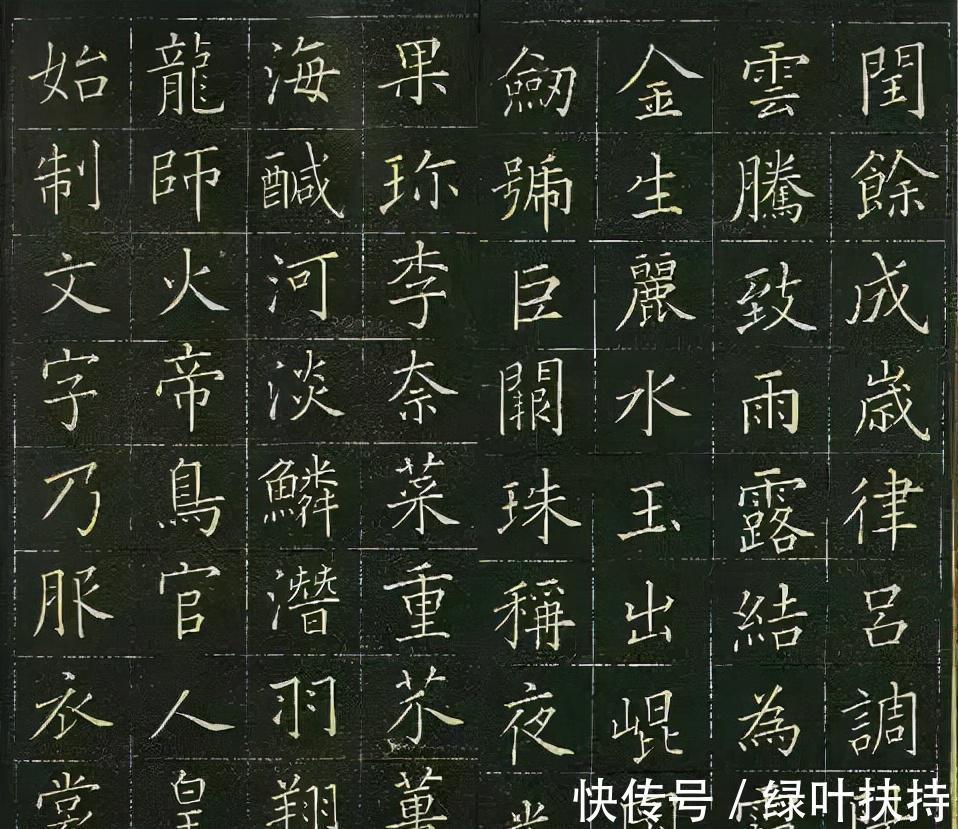 閏餘成歲律呂調
雲騰致雨露結為
金生麗水玉出崐
劒號巨闕珠稱夜光
果珎李奈菜重芥
海醎河淡鱗潛羽翔
龍師火帝鳥官人皇
始制文字乃服衣裳
快传号/绿叶扶持